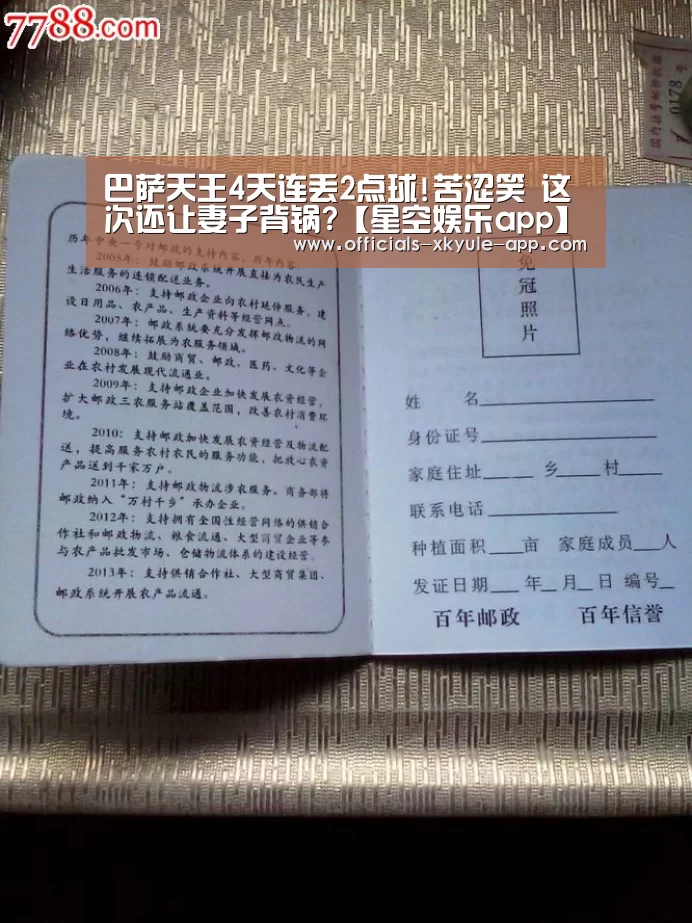 7788.com
国内挂号邮件收据
0178 号
巴萨天王4天连丢2点球!苦涩笑 这
次还让妻子背锅?【星空娱乐app】
www.officials-xkyule-app.com
历年中央一号对邮政的支持内容，历年内容：
2005年：鼓励邮政系统开展直接为农民生产
生活服务的连锁配送业务。
2006年：支持邮政企业向农村延伸服务，建
设日用品、农产品、生产资料等经营网点。
2007年：邮政系统要充分发挥邮政物流的网
络优势，继续拓展为农服务领域。
2008年：鼓励商贸、邮政、医药、文化等企
业在农村发展现代流通业。
2009年：支持邮政企业加快发展农资经营，
扩大邮政三农服务站覆盖范围，改善农村消费环
境。
2010：支持邮政加快发展农资经营及物流配
送，提高服务农村农民的服务功能，把放心农资
产品送到千家万户。
2011年：支持邮政物流涉农服务。商务部将
邮政纳入“万村千乡”承办企业。
2012年：支持拥有全国性经营网络的供销合
作社和邮政物流、粮食流通、大型商贸企业等参
与农产品批发市场、仓储物流体系的建设经营。
2013年：支持供销合作社、大型商贸集团、
邮政系统开展农产品流通。
免
冠
照
片
姓 名
身份证号
家庭住址 乡 村
联系电话
种植面积 亩 家庭成员 人
发证日期 年 月 日 编号
百年邮政 百年信誉